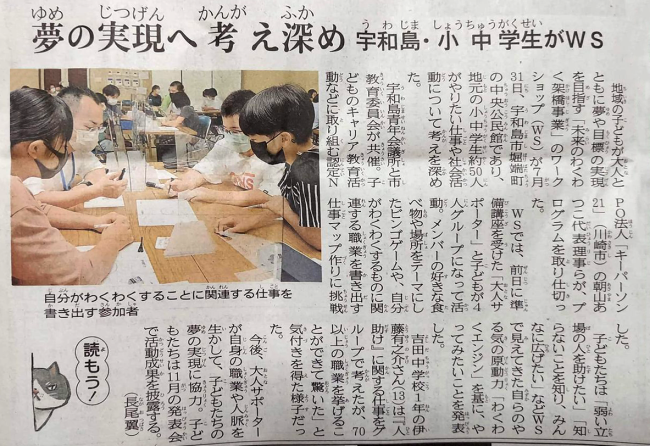 夢の実現へ考え深め
宇和島・小中学生がＷＳ
地域の子どもが大人と
ともに夢や目標の実現
を目指す「未来のわくわ
く架橋事業」のワーク
ショップ（ＷＳ）が7月
31日、宇和島市堀端町
の中央公民館であり、
地元の小中学生約50人
がやりたい仕事や社会活
動について考えを深め
た。
宇和島青年会議所と市
教育委員会が共催。子
どものキャリア教育活
動などに取り組む認定Ｎ
ＰＯ法人「キーパーソン
21」（川崎市）の朝山あ
つこ代表理事らが、プ
ログラムを取り仕切っ
た。
ＷＳでは、前日に準
備講座を受けた「大人サ
ポーター」と子どもが4
人グループになって活
動。メンバーの好きな食
べ物や場所をテーマにし
たビンゴゲームや、自分
がわくわくするものに関
連する職業を書き出す
仕事マップ作りに挑戦
した。
子どもたちは「弱い立
場の人を助けたい」「知
らないことを知り、みん
なに広げたい」などＷＳ
で見えてきた自らのや
る気の原動力「わくわ
くエンジン」を基に、や
ってみたいことを発表
した。
吉田中学校1年の伊
藤有之介さん(13)は「『人
助け』に関する仕事をグ
ループで考えたが、70
以上の職業を挙げるこ
とができて驚いた」と
気付きを得た様子だっ
た。
今後、大人サポーター
が自身の職業や人脈を
生かして、子どもたちの
夢の実現に協力。子ど
もたちは11月の発表会
で活動成果を披露する。
（長尾翼）
自分がわくわくすることに関連する仕事を
書き出す参加者
読もう！